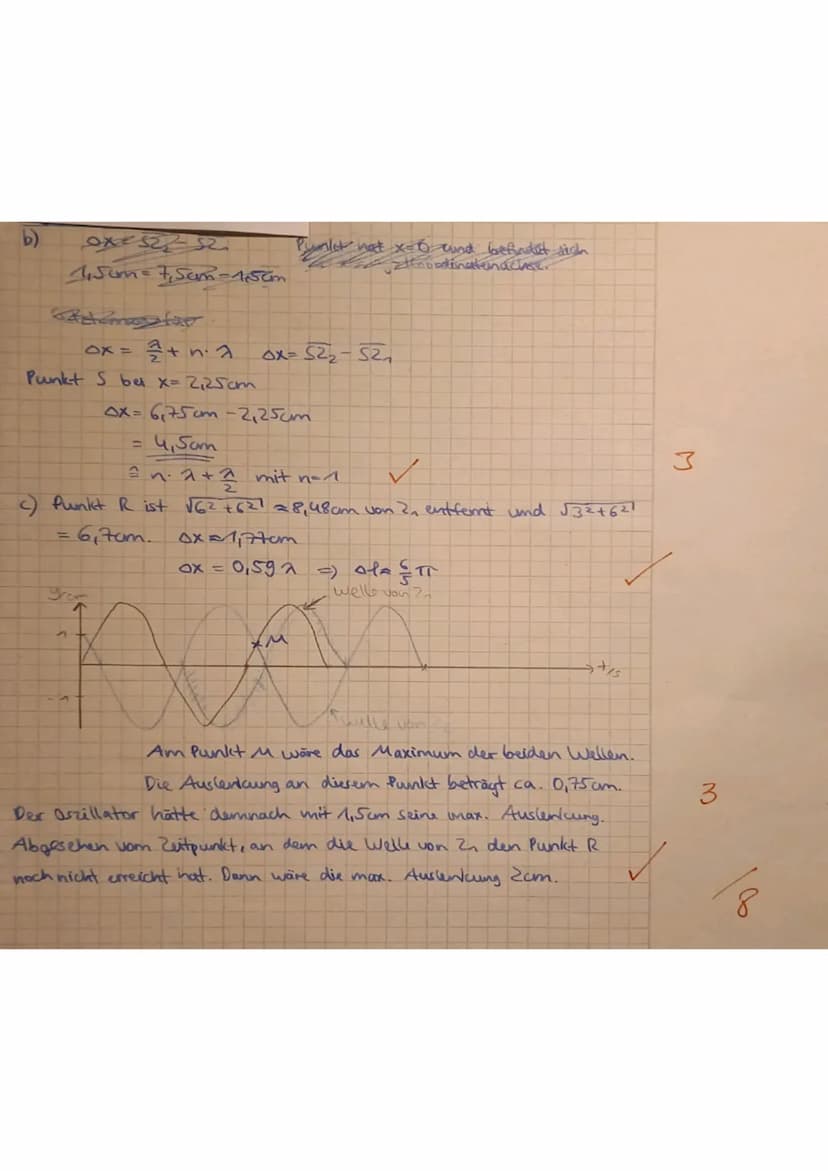 b) Δx = SZ₂ - SZ₁ Punkt hat x=0 und befindet sich
1,5cm = 7,5cm - 1,5cm
Δx = λ/2 + n·λ Δx = SZ₂ - SZ₁
Punkt S bei x = 2,25cm
Δx = 6,75cm - 2,25cm
= 4,5cm
≙ n·λ + λ/2 mit n=1 ✓
3
c) Punkt R ist √(6²+6²) ≈ 8,48cm von Z₁ entfernt und √(3²+6²)
= 6,7cm. Δx ≈ 1,77cm
Δx = 0,59λ ⇒ Δφ ≈ 6/5 π ✓
Welle von Z₁
1
M
t/s
-1
Welle von
Am Punkt M wäre das Maximum der beiden Wellen.
Die Auslenkung an diesem Punkt beträgt ca. 0,75cm.
3
Der Oszillator hätte demnach mit 1,5cm seine max. Auslenkung.
Abgesehen vom Zeitpunkt, an dem die Welle von Z₁ den Punkt R
noch nicht erreicht hat. Dann wäre die max. Auslenkung 2cm. ✓
/8